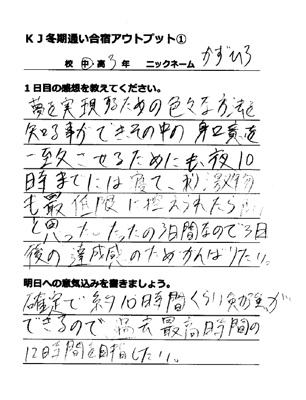 KJ冬期通い合宿アウトプット①
校 中 高 3年 ニックネーム かずひろ
1日目の感想を教えてください。
夢を実現するための色々な方法を
知る事ができその中の身口意を
一致させるためにも、夜10
時までには寝て、刺激物
も最低限に控えられたら
と思った。たったの3日間なので3日
後の達成感のためがんばりたい。
明日への意気込みを書きましょう。
確定で約10時間くらい勉強が
できるので、過去最高時間の
12時間を目指したい。